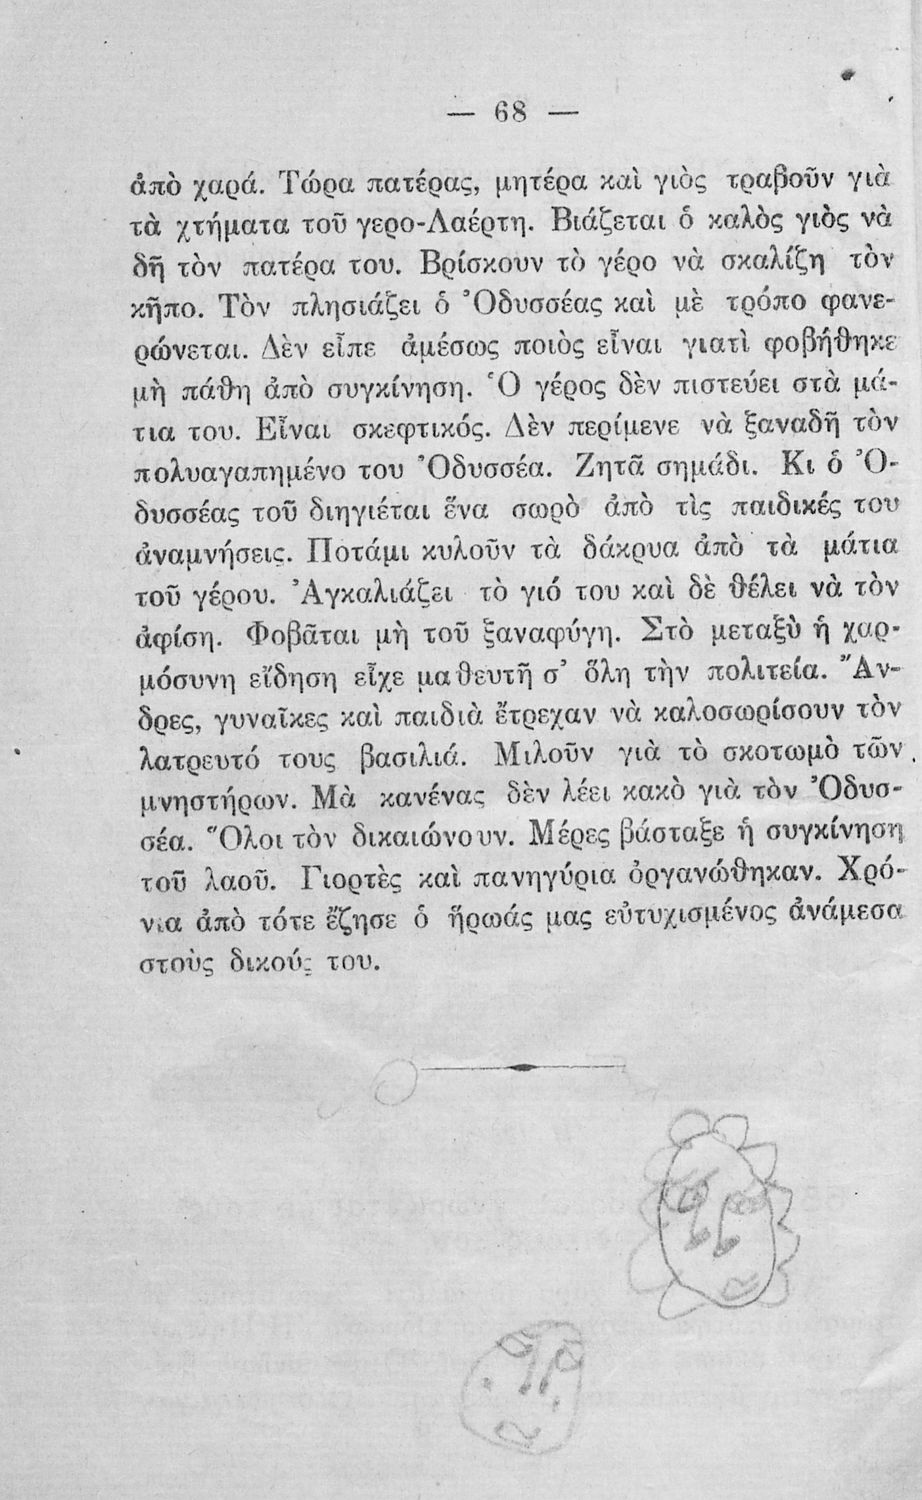 — 68 —
ἀπὸ χαρά. Τώρα πατέρας, μητέρα καὶ γιὸς τραβοῦν γιὰ
τὰ χτήματα τοῦ γερο-Λαέρτη. Βιάζεται ὁ καλὸς γιὸς νὰ
δῆ τὸν πατέρα του. Βρίσκουν τὸ γέρο νὰ σκαλίζη τὸν
κῆπο. Τὸν πλησιάζει ὁ Ὀδυσσέας καὶ μὲ τρόπο φανε-
ρώνεται. Δὲν εἶπε ἀμέσως ποιὸς εἶναι γιατὶ φοβήθηκε
μὴ πάθη ἀπὸ συγκίνηση. Ὁ γέρος δὲν πιστεύει στὰ μά-
τια του. Εἶναι σκεφτικός. Δὲν περίμενε νὰ ξαναδῆ τὸν
πολυαγαπημένο του Ὀδυσσέα. Ζητᾶ σημάδι. Κι ὁ Ὀ-
δυσσέας τοῦ διηγιέται ἕνα σωρὸ ἀπὸ τὶς παιδικές του
ἀναμνήσεις. Ποτάμι κυλοῦν τὰ δάκρυα ἀπὸ τὰ μάτια
τοῦ γέρου. Ἀγκαλιάζει τὸ γιό του καὶ δὲ θέλει νὰ τὸν
ἀφίση. Φοβᾶται μὴ τοῦ ξαναφύγη. Στὸ μεταξὺ ἡ χαρ-
μόσυνη εἴδηση εἶχε μαθευτῆ σ’ ὅλη τὴν πολιτεία. Ἄν-
δρες, γυναῖκες καὶ παιδιὰ ἔτρεχαν νὰ καλοσωρίσουν τὸν
λατρευτό τους βασιλιά. Μιλοῦν γιὰ τὸ σκοτωμὸ τῶν
μνηστήρων. Μὰ κανένας δὲν λέει κακὸ γιὰ τὸν Ὀδυσ-
σέα. Ὅλοι τὸν δικαιώνουν. Μέρες βάσταξε ἡ συγκίνηση
τοῦ λαοῦ. Γιορτὲς καὶ πανηγύρια ὀργανώθηκαν. Χρό-
νια ἀπὸ τότε ἔζησε ὁ ἥρωάς μας εὐτυχισμένος ἀνάμεσα
στοὺς δικούς του.